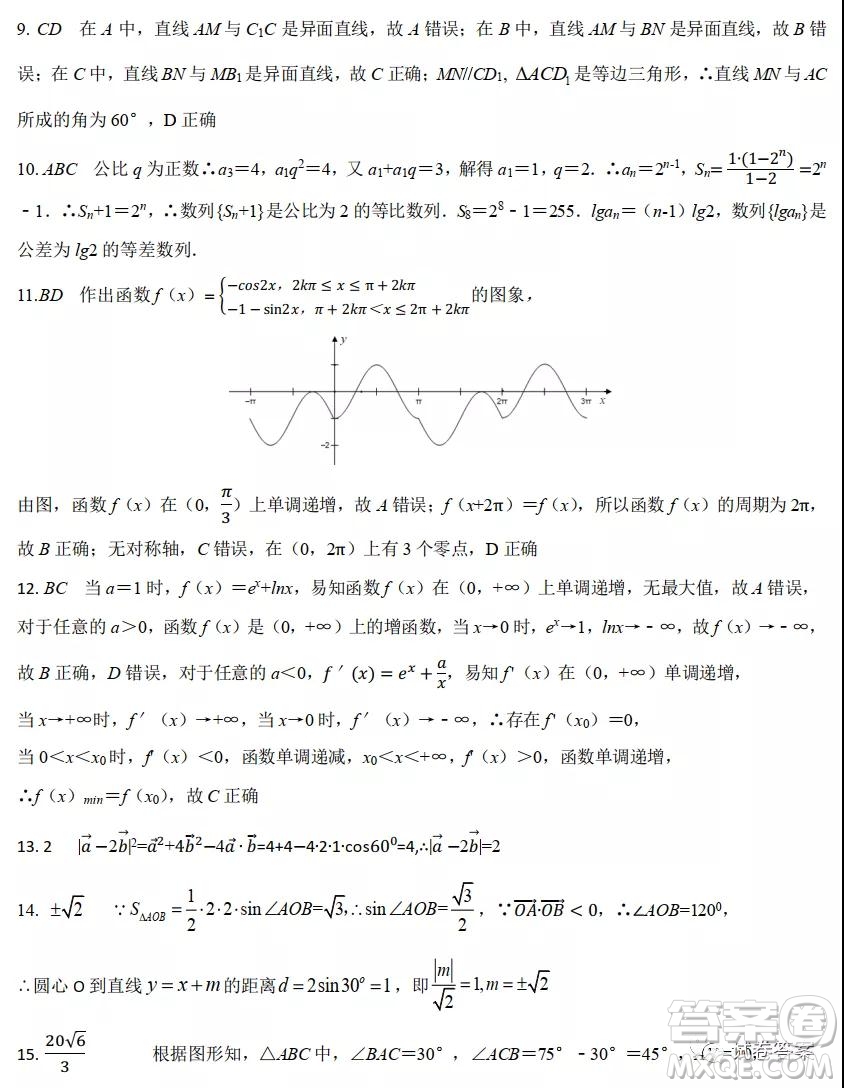 9. CD 在 A 中，直线 AM 与 C₁C 是异面直线，故 A 错误；在 B 中，直线 AM 与 BN 是异面直线，故 B 错
误；在 C 中，直线 BN 与 MB₁ 是异面直线，故 C 正确；MN//CD₁, ΔACD₁是等边三角形，∴直线 MN 与 AC
所成的角为 60°，D 正确
10. ABC 公比 q 为正数∴a₃＝4，a₁q²＝4，又 a₁+a₁q＝3，解得 a₁＝1，q＝2．∴aₙ＝2ⁿ⁻¹，Sₙ= \frac{1·(1−2ⁿ)}{1−2} =2ⁿ
﹣1．∴Sₙ+1＝2ⁿ，∴数列{Sₙ+1}是公比为 2 的等比数列．S₈＝2⁸﹣1＝255．lgaₙ＝（n-1）lg2，数列{lgaₙ}是
公差为 lg2 的等差数列．
11.BD 作出函数 f（x）= { −cos2x，2kπ ≤ x ≤ π + 2kπ
−1 − sin2x，π + 2kπ＜x ≤ 2π + 2kπ 的图象，
y
−π π 2π 3π x
−2
由图，函数 f（x）在（0，\frac{π}{3}）上单调递增，故 A 错误；f（x+2π）＝f（x），所以函数 f（x）的周期为 2π，
故 B 正确；无对称轴，C 错误，在（0，2π）上有 3 个零点，D 正确
12. BC 当 a＝1 时，f（x）＝eˣ+lnx，易知函数 f（x）在（0，+∞）上单调递增，无最大值，故 A 错误，
对于任意的 a＞0，函数 f（x）是（0，+∞）上的增函数，当 x→0 时，eˣ→1，lnx→﹣∞，故 f（x）→﹣∞，
故 B 正确，D 错误，对于任意的 a＜0，f ′(x) = eˣ + \frac{a}{x}，易知 f′（x）在（0，+∞）单调递增，
当 x→+∞时，f′（x）→+∞，当 x→0 时，f′（x）→﹣∞，∴存在 f′（x₀）＝0，
当 0＜x＜x₀ 时，f′（x）＜0，函数单调递减，x₀＜x＜+∞，f′（x）＞0，函数单调递增，
∴f（x）min＝f（x₀），故 C 正确
13. 2 |\vec{a} −2\vec{b}|²=\vec{a}²+4\vec{b}²−4\vec{a}·\vec{b}=4+4−4·2·1·cos60⁰=4,∴|\vec{a} −2\vec{b}|=2
14. ±√2 ∵ S_{ΔAOB} = \frac{1}{2}·2·2·sin∠AOB=√3,∴sin∠AOB=\frac{√3}{2}，∵\vec{OA}·\vec{OB} < 0，∴∠AOB=120⁰，
∴圆心 O 到直线 y = x + m 的距离 d = 2sin30° = 1，即 \frac{|m|}{√2} = 1, m = ±√2
15. \frac{20√6}{3} 根据图形知，△ABC 中，∠BAC＝30°，∠ACB＝75°﹣30°＝45°，
答案圈
试卷答案